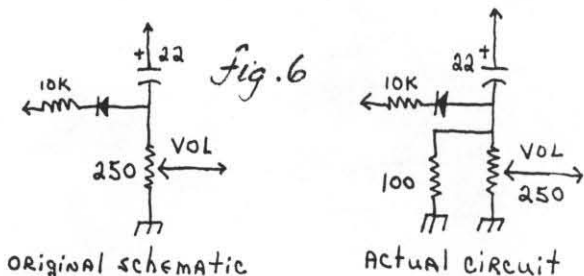 + 22
10K
Fig. 6
VOL
250
ORIGINAL SCHEMATIC
22 +
10K
100
VOL
250
ACTUAL CIRCUIT